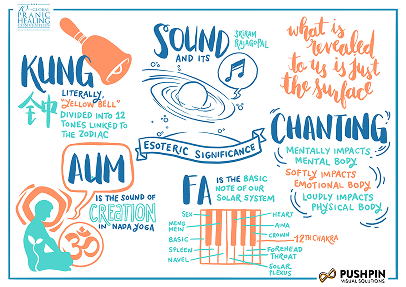 10th GLOBAL
PRANIC
HEALING
CONVENTION
KUNG
鈡
LITERALLY,
"YELLOW BELL"
DIVIDED INTO 12
TONES LINKED TO
THE ZODIAC
SOUND
AND ITS
SRIRAM
RAJAGOPAL
ESOTERIC SIGNIFICANCE
what is
revealed
to us is just
the surface
CHANTING
MENTALLY IMPACTS
MENTAL BODY
SOFTLY IMPACTS
EMOTIONAL BODY
LOUDLY IMPACTS
PHYSICAL BODY
AUM
IS THE SOUND OF
CREATION
IN NADA YOGA
ॐ
FA
IS THE BASIC
NOTE OF OUR
SOLAR SYSTEM
SEX
MENG
MEIN
BASIC
SPLEEN
NAVEL
HEART
AJNA
CROWN
12TH CHAKRA
FOREHEAD
THROAT
SOLAR
PLEXUS
PUSHPIN
VISUAL SOLUTIONS